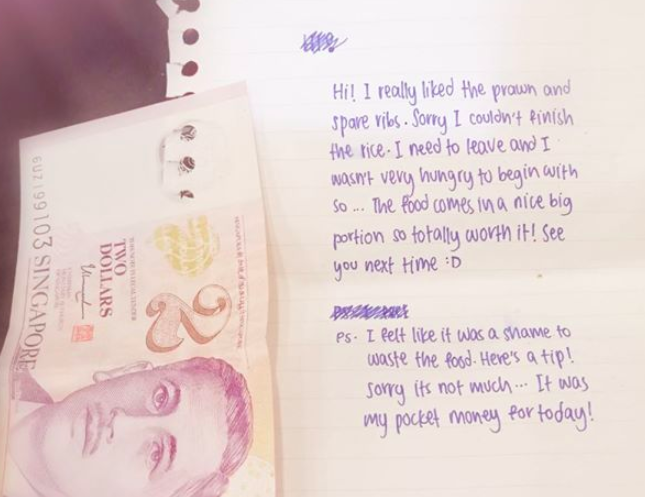 Hi! I really liked the prawn and
spare ribs. Sorry I couldn't finish
the rice. I need to leave and I
wasn't very hungry to begin with
so ... The food comes in a nice big
portion so totally worth it! See
you next time :D
Ps. I felt like it was a shame to
waste the food. Here's a tip!
Sorry its not much... It was
my pocket money for today!
6UZ199103
SINGAPORE
TWO
DOLLARS
2